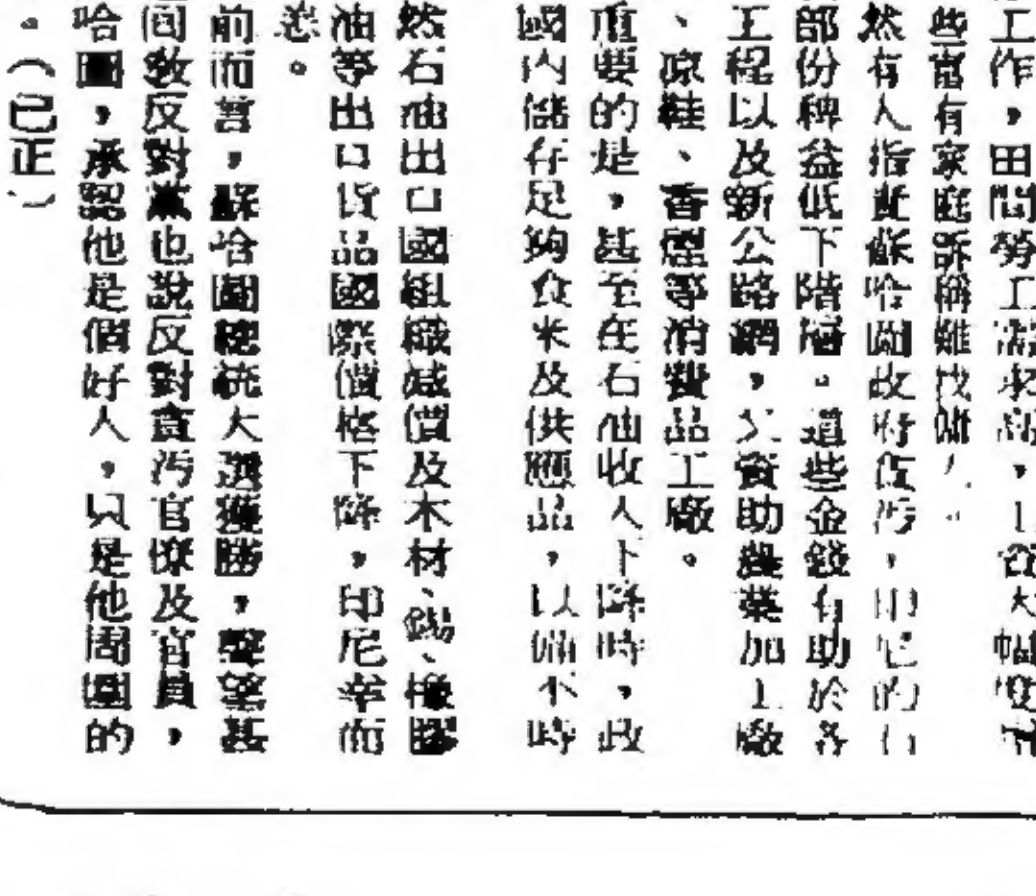 工作，田間勞工需求高，工資大幅度增
些富有家庭訴稱難找傭人。
然有人指責蘇哈圖政府貪污，印尼的石
部份稗益低下階層。這些金錢有助於各
工程以及新公路網，又資助農業加工廠
、凉鞋、香煙等消費品工廠。
重要的是，甚至在石油收入下降時，政
國內儲存足夠食米及供應品，以備不時
然石油出口國組織減價及木材、錫、橡膠
油等出口貨品國際價格下降，印尼幸而
恙。
前而言，蘇哈圖總統大選獲勝，聲望甚
回教反對黨也說反對貪污官僚及官員，
哈圖，承認他是個好人，只是他周圍的
。（已正）